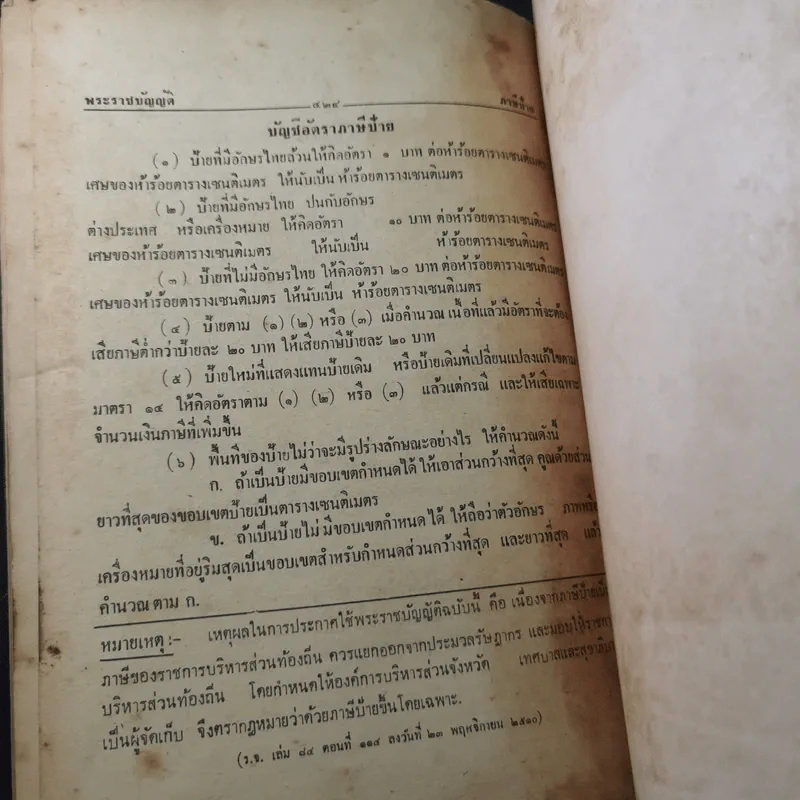 พระราชบัญญัติ ๔๒๙ ภาษีป้าย
บัญชีอัตราภาษีป้าย
(๑) ป้ายที่มีอักษรไทยล้วนให้คิดอัตรา ๑ บาท ต่อห้าร้อยตารางเซนติเมตร
เศษของห้าร้อยตารางเซนติเมตร ให้นับเป็น ห้าร้อยตารางเซนติเมตร
(๒) ป้ายที่มีอักษรไทย ปนกับอักษร
ต่างประเทศ หรือเครื่องหมาย ให้คิดอัตรา ๑๐ บาท ต่อห้าร้อยตารางเซนติเมตร
เศษของห้าร้อยตารางเซนติเมตร ให้นับเป็น ห้าร้อยตารางเซนติเมตร
(๓) ป้ายที่ไม่มีอักษรไทย ให้คิดอัตรา ๒๐ บาท ต่อห้าร้อยตารางเซนติเมตร
เศษของห้าร้อยตารางเซนติเมตร ให้นับเป็น ห้าร้อยตารางเซนติเมตร
(๔) ป้ายตาม (๑) (๒) หรือ (๓) เมื่อคำนวณ เนื้อที่แล้วมีอัตราที่จะต้อง
เสียภาษีต่ำกว่าป้ายละ ๒๐ บาท ให้เสียภาษีป้ายละ ๒๐ บาท
(๕) ป้ายใหม่ที่แสดงแทนป้ายเดิม หรือป้ายเดิมที่เปลี่ยนแปลงแก้ไขตาม
มาตรา ๑๔ ให้คิดอัตราตาม (๑) (๒) หรือ (๓) แล้วแต่กรณี และให้เสียเฉพาะ
จำนวนเงินภาษีที่เพิ่มขึ้น
(๖) พื้นที่ของป้ายไม่ว่าจะมีรูปร่างลักษณะอย่างไร ให้คำนวณดังนี้
ก. ถ้าเป็นป้ายมีขอบเขตกำหนดได้ ให้เอาส่วนกว้างที่สุด คูณด้วยส่วน
ยาวที่สุดของขอบเขตป้ายเป็นตารางเซนติเมตร
ข. ถ้าเป็นป้ายไม่ มีขอบเขตกำหนด ได้ ให้ถือว่าตัวอักษร ภาพหรือ
เครื่องหมายที่อยู่ริมสุดเป็นขอบเขตสำหรับกำหนดส่วนกว้างที่สุด และยาวที่สุด แล้ว
คำนวณ ตาม ก.
หมายเหตุ :- เหตุผลในการประกาศใช้พระราชบัญญัติฉบับนี้ คือ เนื่องจากภาษีป้ายเป็น
ภาษีของราชการบริหารส่วนท้องถิ่น ควรแยกออกจากประมวลรัษฎากร และมอบให้ราชการ
บริหารส่วนท้องถิ่น โดยกำหนดให้องค์การบริหารส่วนจังหวัด เทศบาลและสุขาภิบาล
เป็นผู้จัดเก็บ จึงตรากฎหมายว่าด้วยภาษีป้ายขึ้นโดยเฉพาะ.
(ร.จ. เล่ม ๘๔ ตอนที่ ๑๑๔ ลงวันที่ ๒๓ พฤศจิกายน ๒๕๑๐)